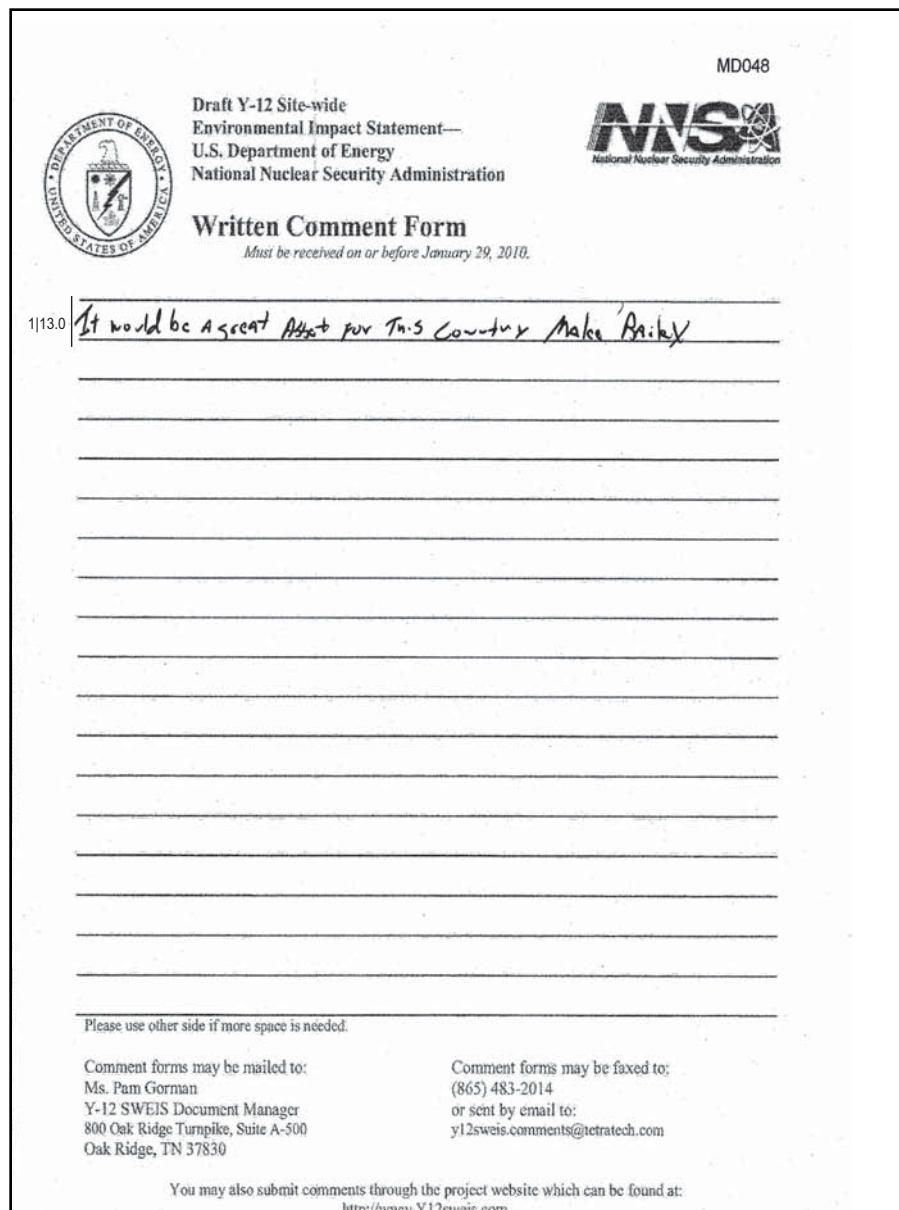 MD048
Draft Y-12 Site-wide
Environmental Impact Statement—
U.S. Department of Energy
National Nuclear Security Administration
DEPARTMENT OF ENERGY
UNITED STATES OF AMERICA
NNSA
National Nuclear Security Administration
Written Comment Form
Must be received on or before January 29, 2010.
1|13.0
It would be A great Asset for This Country
Please use other side if more space is needed.
Comment forms may be mailed to:
Ms. Pam Gorman
Y-12 SWEIS Document Manager
800 Oak Ridge Turnpike, Suite A-500
Oak Ridge, TN 37830
Comment forms may be faxed to:
(865) 483-2014
or sent by email to:
y12sweis.comments@tetratech.com
You may also submit comments through the project website which can be found at:
http://www.Y12sweis.com